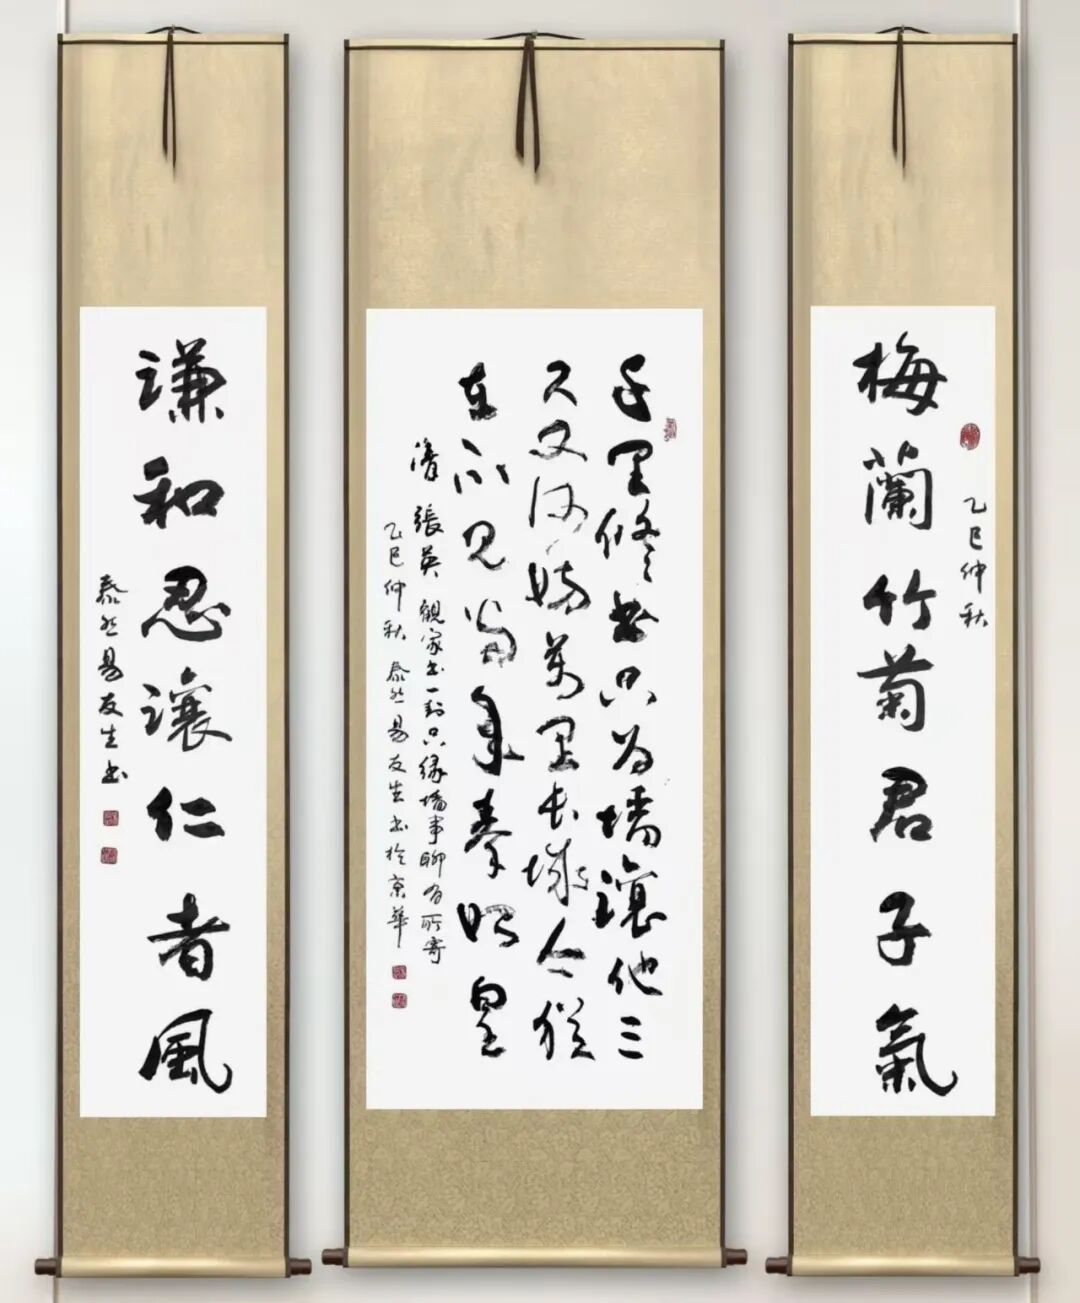 乙巳仲秋
梅蘭竹菊君子氣
千里修書只為墻讓他三
尺又何妨萬里長城今猶
在不見當年秦始皇
清張英觀家書一封只緣墻事聊有所寄
乙巳仲秋泰然易友生書於京華
謙和忍讓仁者風
泰然易友生書